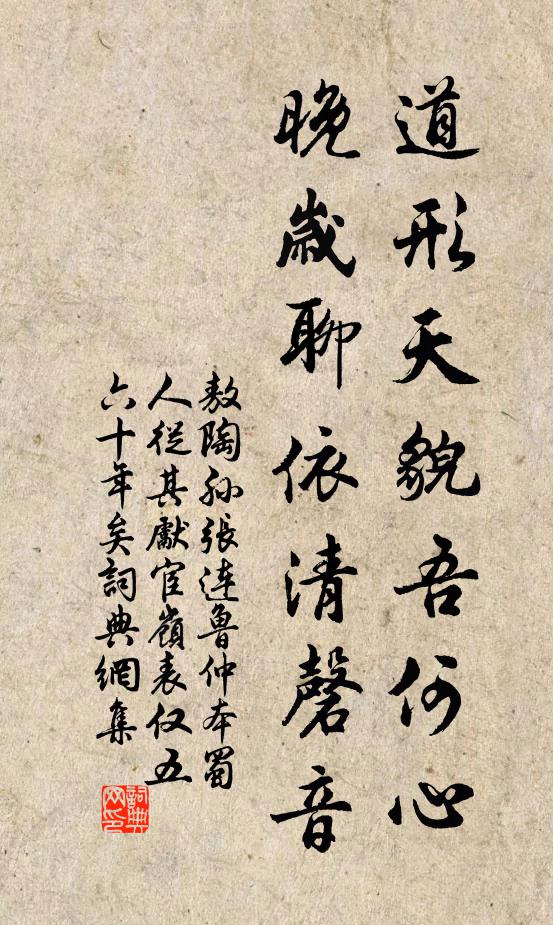 道形天貌吾何心
晚歲聊依清磬音
敖陶孫張違魯仲本蜀
人從其獻宦嶺表仅五
六十年矣詞典網集
詞典网印